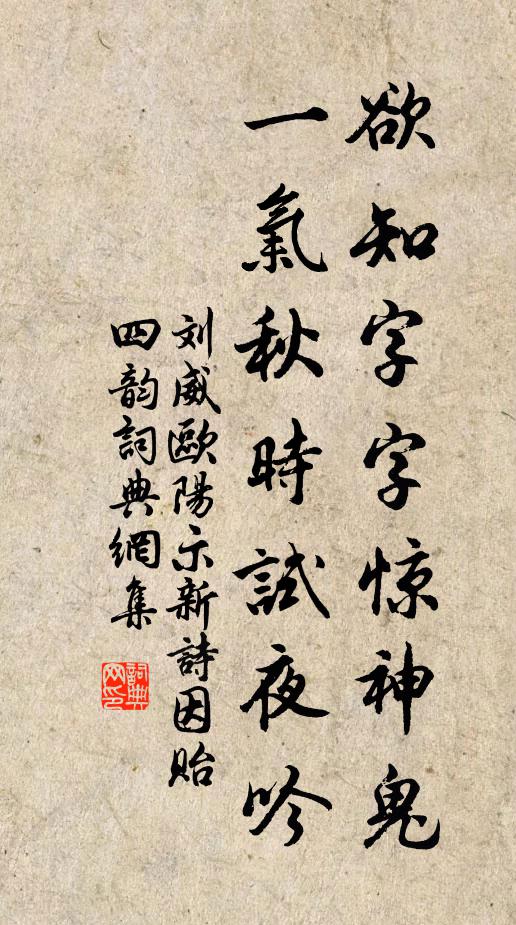 欲知字字惊神鬼
一氣秋時試夜吟
刘威歐陽示新詩因貽
四韵詞典網集
詞典网印